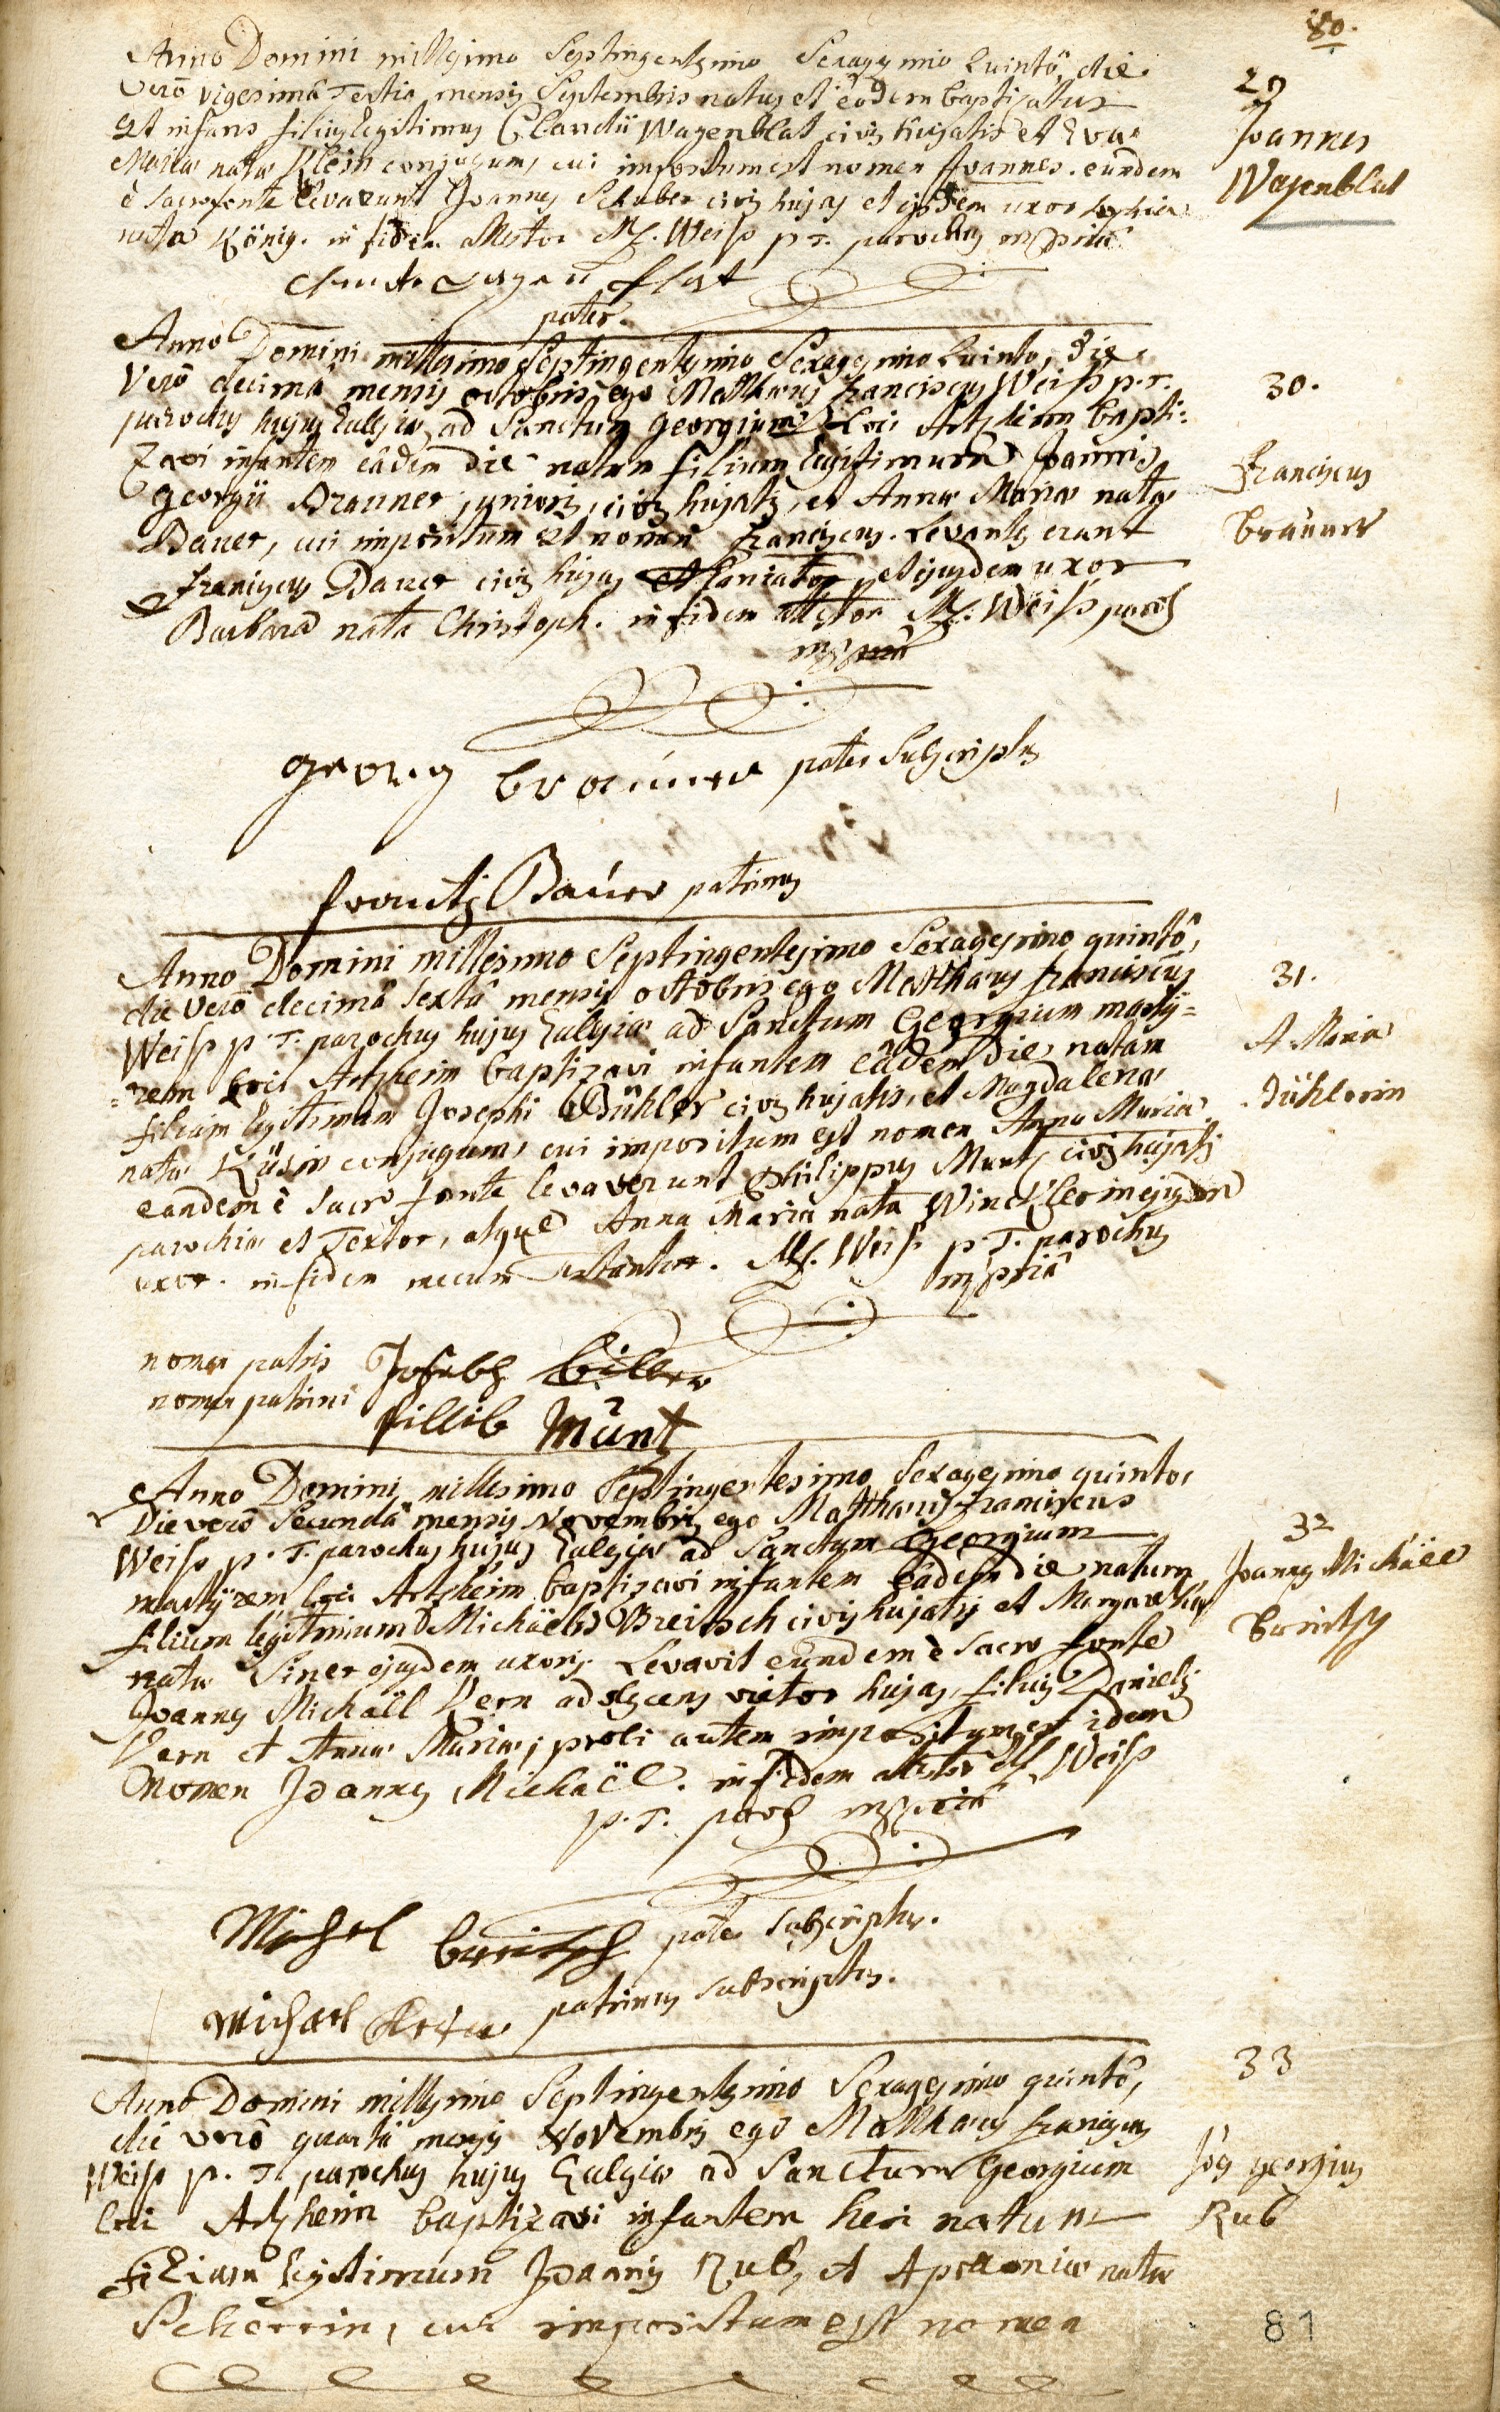 80.
Anno Domini millesimo Septingentesimo Sexagesimo Quintô, die
verò vigesimâ Tertia mensis Septembris natus et eâdem baptizatus
est infans filius legitimus Claudii Wagenblat civis hujatis et Eva
Maria nata Klein conjugum, cui impositum est nomen Joannes. eundem
è Sacro fonte levarunt Joannes Schuber civis hujas et ejusdem uxor Sophia
nata König. in fidem Attestor M. F. Weiss p.T. parochus mpriâ
29
Joannes
Wagenblat
pater.
Anno Domini millesimo Septingentesimo Sexagesimo Quinto, die
verò decimâ mensis octobris ego Matthaeus Franciscus Weiss p.T.
parochus hujus Ecclesiae ad Sanctum Georgium loci Artzheim bapti:
zavi infantem eâdem die natum filium legitimum Joannis
Georgii Brauner junioris, civis hujatis, et Annae Mariae nata
Bauer, cui impositum est nomen Franciscus. Levantes erant
Franciscus Bauer civis hujas et ejusdem uxor
Barbara nata Christoph. in fidem attestor M. F. Weiss paroch
mpriâ
30.
Franciscus
Brauner
georg brauner pater Subscriptus
frantz Bauer patrinus
Anno Domini millesimo Septingentesimo Sexagesimo quintô,
die verò decimâ sextâ mensis octobris ego Matthaeus Franciscus
Weiss p.T. parochus hujus Ecclesiae ad Sanctum Georgium marty=
=rem loci Artzheim baptizavi infantem eâdem die natam
filiam legitimam Josephi Bühler civis hujatis, et Magdalena
nata conjugum, cui impositum est nomen Anna Maria.
eandem è sacro fonte levaverunt Philippus Muntz civis hujatis
parochiae et Textor, atque Anna Maria nata Winckler ejusdem
uxor. in fidem mecum testantur. M. F. Weiss p.T. parochus
mpriâ
31.
A. Maria
Bühlerin
nomen patris Joseph biller
nomen patrini fillib Münt
Anno Domini millesimo Septingentesimo Sexagesimo quinto,
Die verò Secundâ mensis Novembris ego Matthaeus Franciscus
Weiss p.T. parochus hujus Ecclesiae ad Sanctum Georgium
martyrem loci Artzheim baptizavi infantem eâdem die natum
filium legitimum Michäelis Breitsch civis hujatis et Margaretha
nata Siner ejusdem uxoris. Levavit eundem è sacro fonte
Joannes Michaël Kern adolescens vietor hujas, filius Danielis
Kern et Anna Maria; proli autem impositum est idem
nomen Joannes Michaël. in fidem attestor M. F. Weiss
p.T. paroch mpriâ
32
Joannes Michäel
breitsch
Michel breitsch pater subscriptus.
Michael patrinus subscriptus.
Anno Domini millesimo Septingentesimo Sexagesimo quintô,
die verò quartâ mensis Novembris ego Matthaeus Franciscus
Weiss p.T. parochus hujus Ecclesiae ad Sanctum Georgium
loci Artzheim baptizavi infantem heri natum
filium legitimum Joannis Rub, et Apolloniae nata
Scherrin, cui impositum est nomen
33
Jos georgius
Rub
81